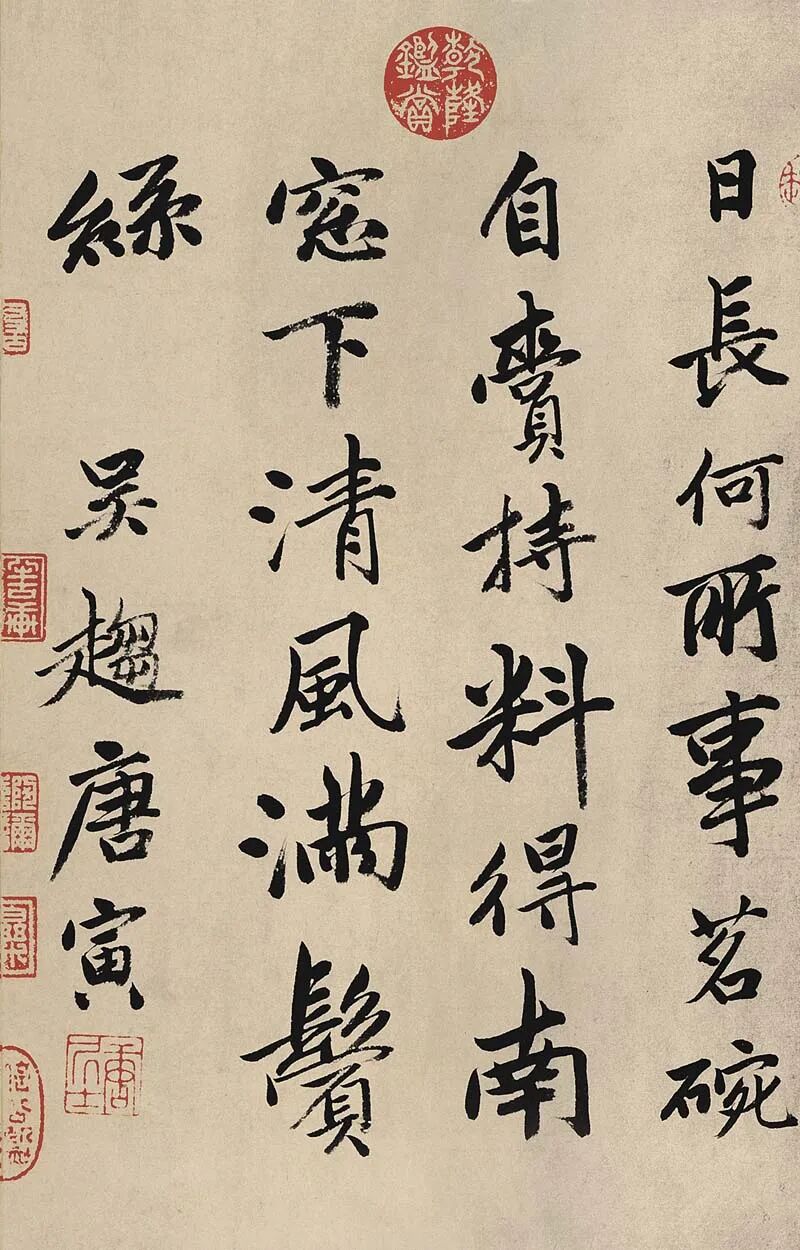 乾隆鑑賞
日長何所事茗碗
自賫持料得南
窓下清風滿鬢
絲 吳趨唐寅
唐居士